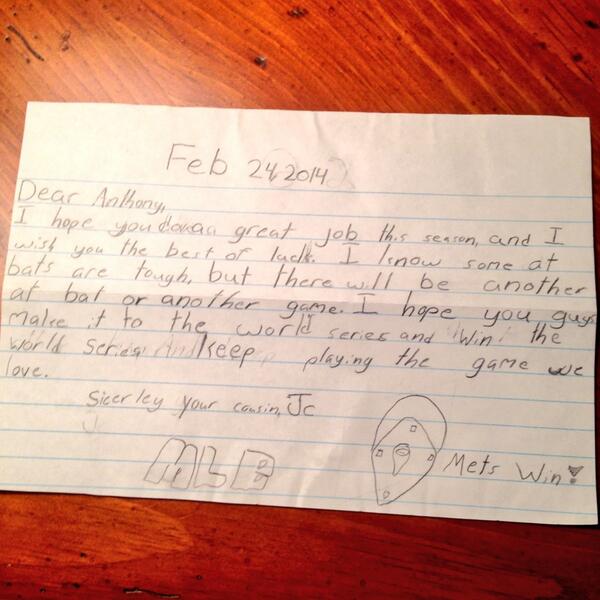 Feb 24, 2014
Dear Anthony,
I hope you do a great job this season, and I
wish you the best of luck. I know some at
bats are tough, but there will be another
at bat or another game. I hope you guys
make it to the world series and Win the
World Series And keep playing the game we
love.
Sicerley your cousin, Jc
MLB
Mets Win!